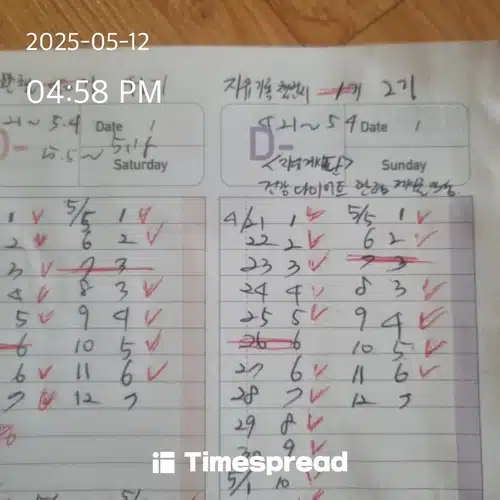 2025-05-12
04:58 PM
자유기록 챌린지 1기 2기
4.21~5.4
D- Date
Saturday
5.5~
4.21~5.4
D- Date
Sunday
건강 다이어트
1 5/5 1
2 6 2
3 7 3
4 8 3
5 9 4
6 10 5
6 11 6
7 12 7
4/21 1 5/5 1
22 2 6 2
23 3 7 3
24 4 8 3
25 5 9 4
26 6 10 5
27 6 11 6
28 7 12 7
29 8
30 9
5/1 10
Timespread